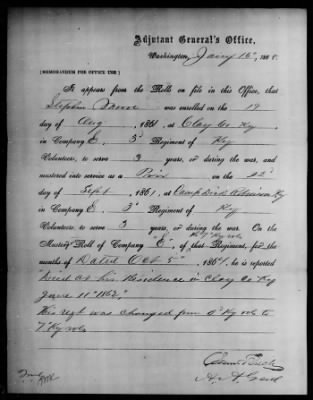 Adjutant General's Office,
Washington, Jany 15", 1868.
[MEMORANDUM FOR OFFICE USE.]
It appears from the Rolls on file in this Office, that
Stephen was enrolled on the 19
day of Aug, 1861, at Clay Co Ky
in Company E. 3d Regiment of Ky
Volunteers, to serve 3 years, or during the war, and
mustered into service as a Priv on the 22d
day of Sept, 1861, at Camp Dick Robinson Ky
in Company E. 3d Regiment of Ky
Volunteers, to serve 3 years, or during the war. On the
Muster Roll of Company "E", of that Regiment, for the
months of Dated Oct 5", 1864, he is reported
"Died at his Residence in Clay Co Ky
June 11" 1862."
His regt was changed from 3d Ky vols to
7" Ky vols
A. A. Genl